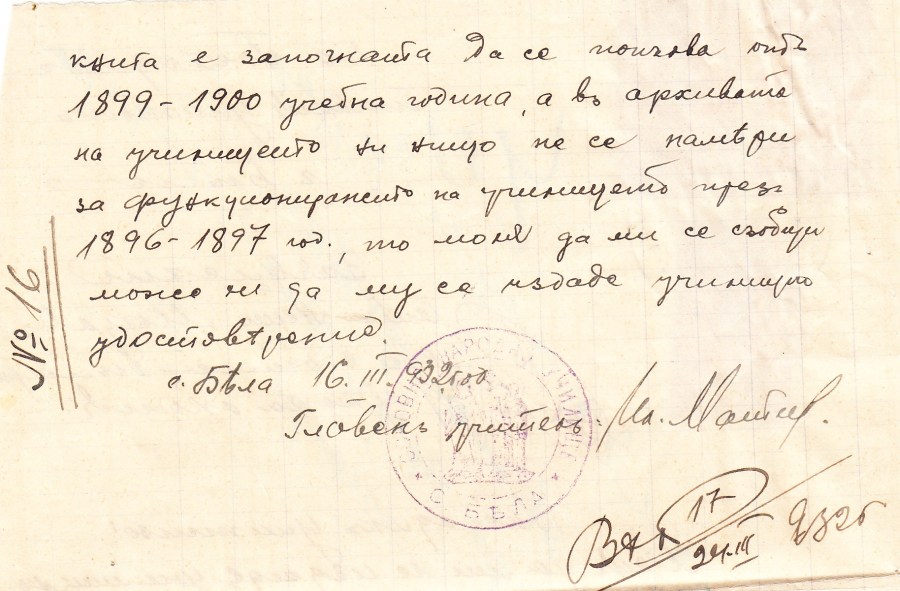 книга е започната да се почнова отъ
1899-1900 учебна година, а въ архивата
на училището ни нищо не се намѣри
за функционирането на училището презъ
1896-1897 год., то моля да ми се съобщи
може ли да му се издаде училищно
удостовѣрение.
с. Бѣла 16.III.932 год
Главенъ учитель:
№ 16
НАРОДНО УЧИЛИЩЕ
С. БѢЛА
17
24.III 932 г